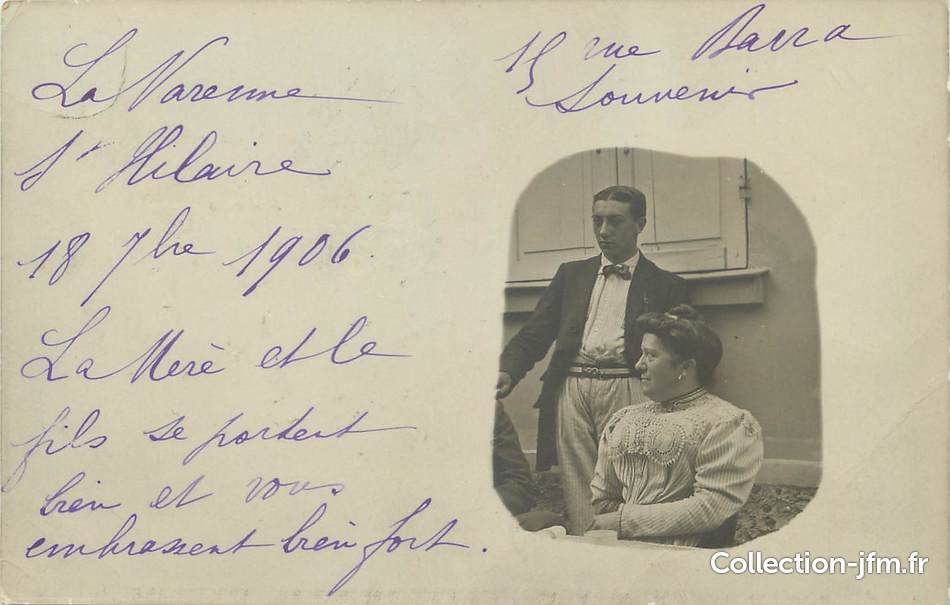 La Varenne
St Hilaire
18 7bre 1906.
La Mère et le
fils se portent
bien et vous
embrassent bien fort.
15 rue Barra
Souvenir
Collection-jfm.fr